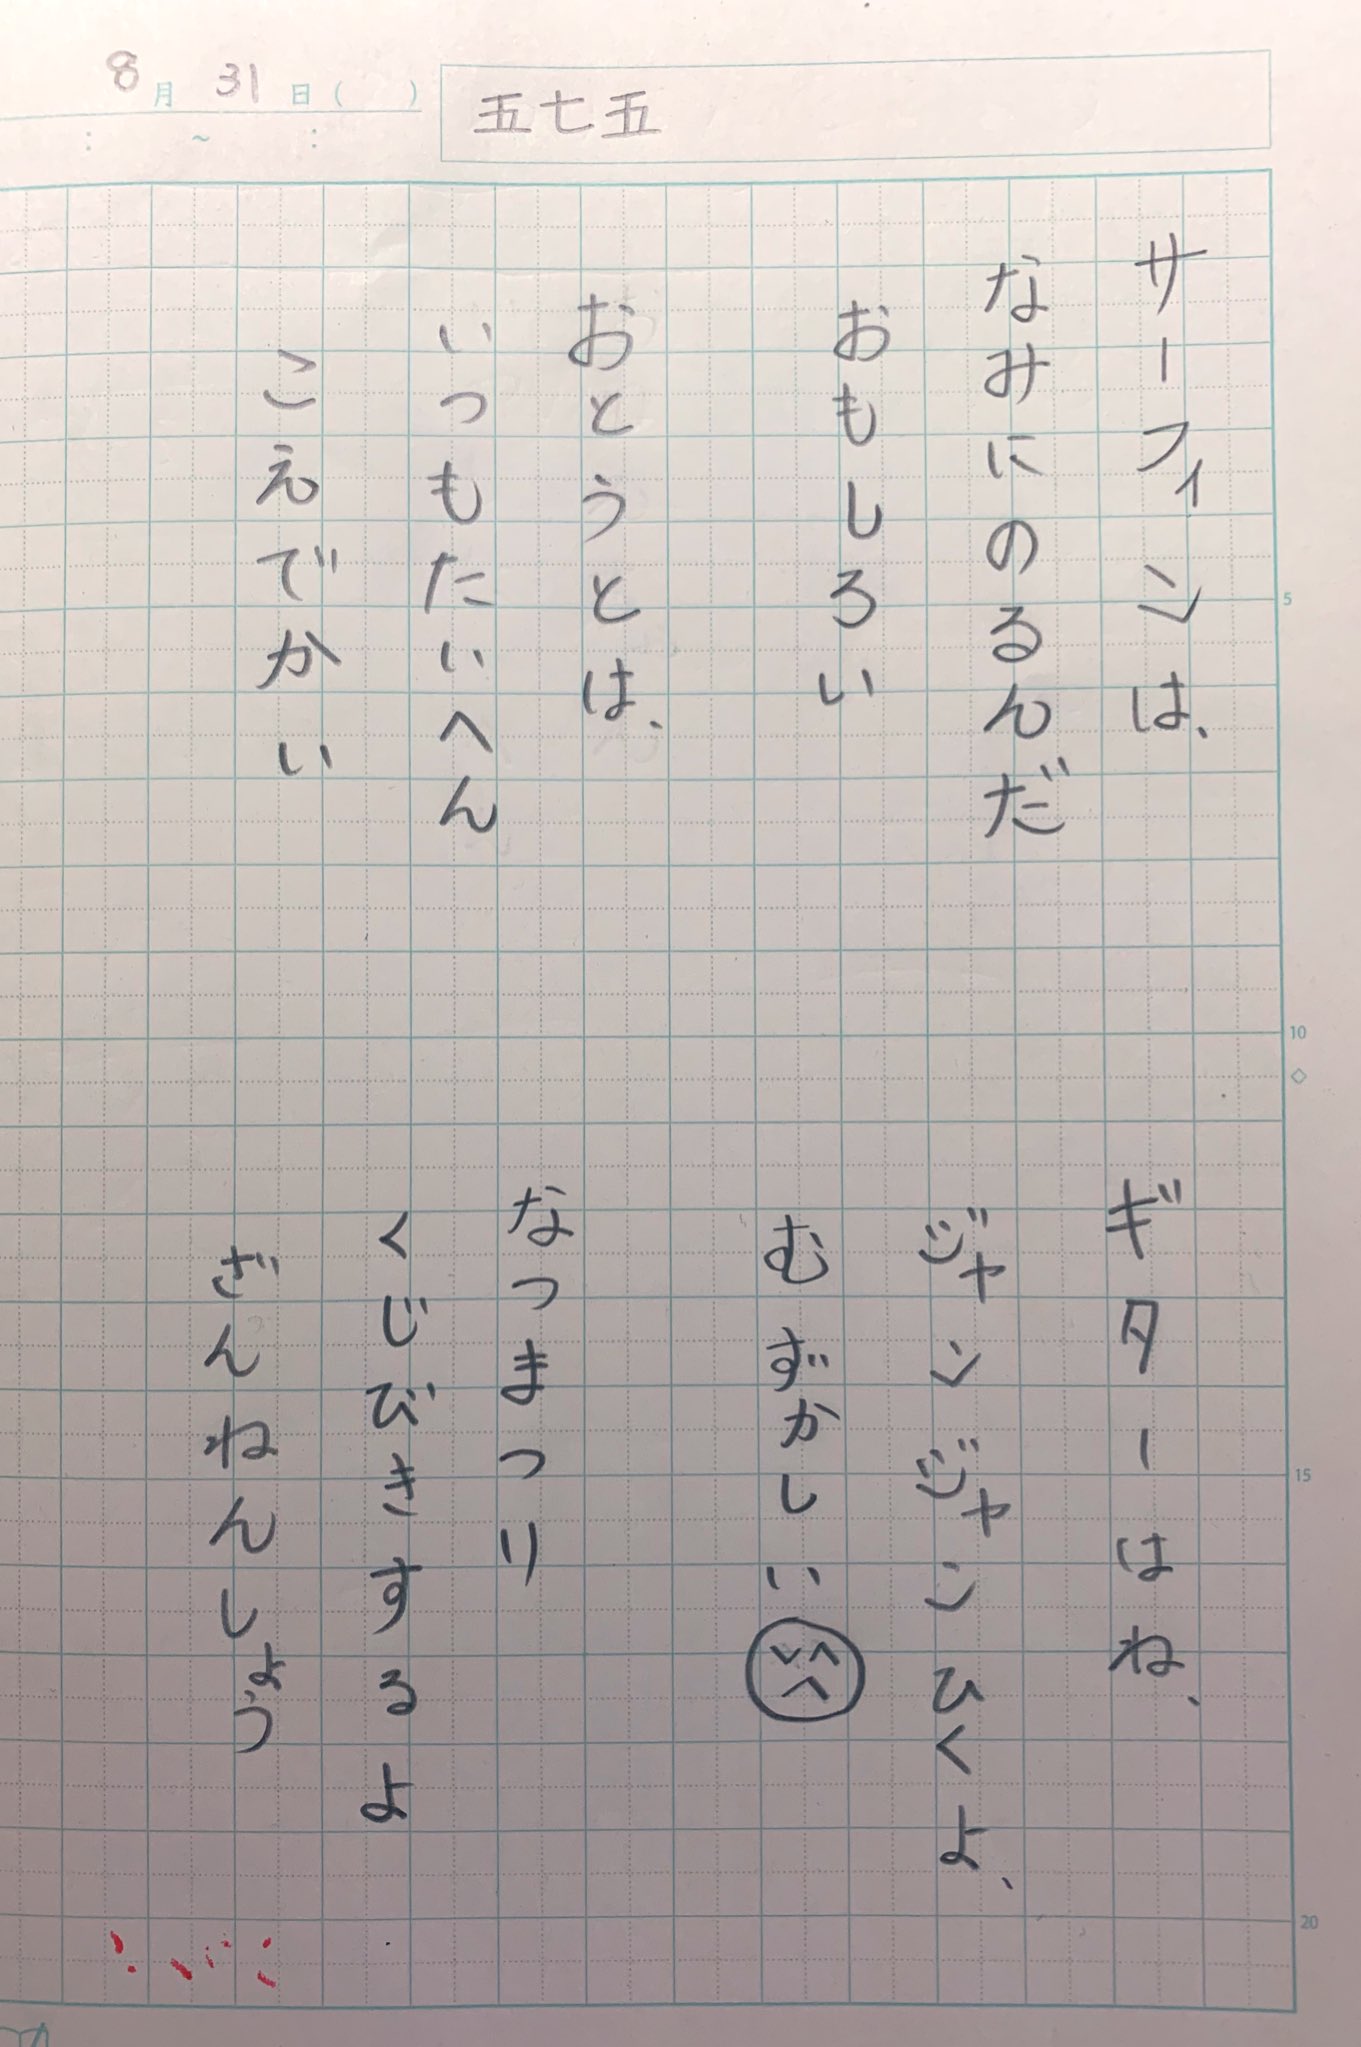 8月31日( )
: ~ :
五七五
サーフィンは、
なみにのるんだ
おもしろい
おとうとは、
いつもたいへん
こえでかい
ギターはね、
ジャンジャンひくよ、
むずかしい
なつまつり
くじびきするよ
ざんねんしょう
5
10
15
20